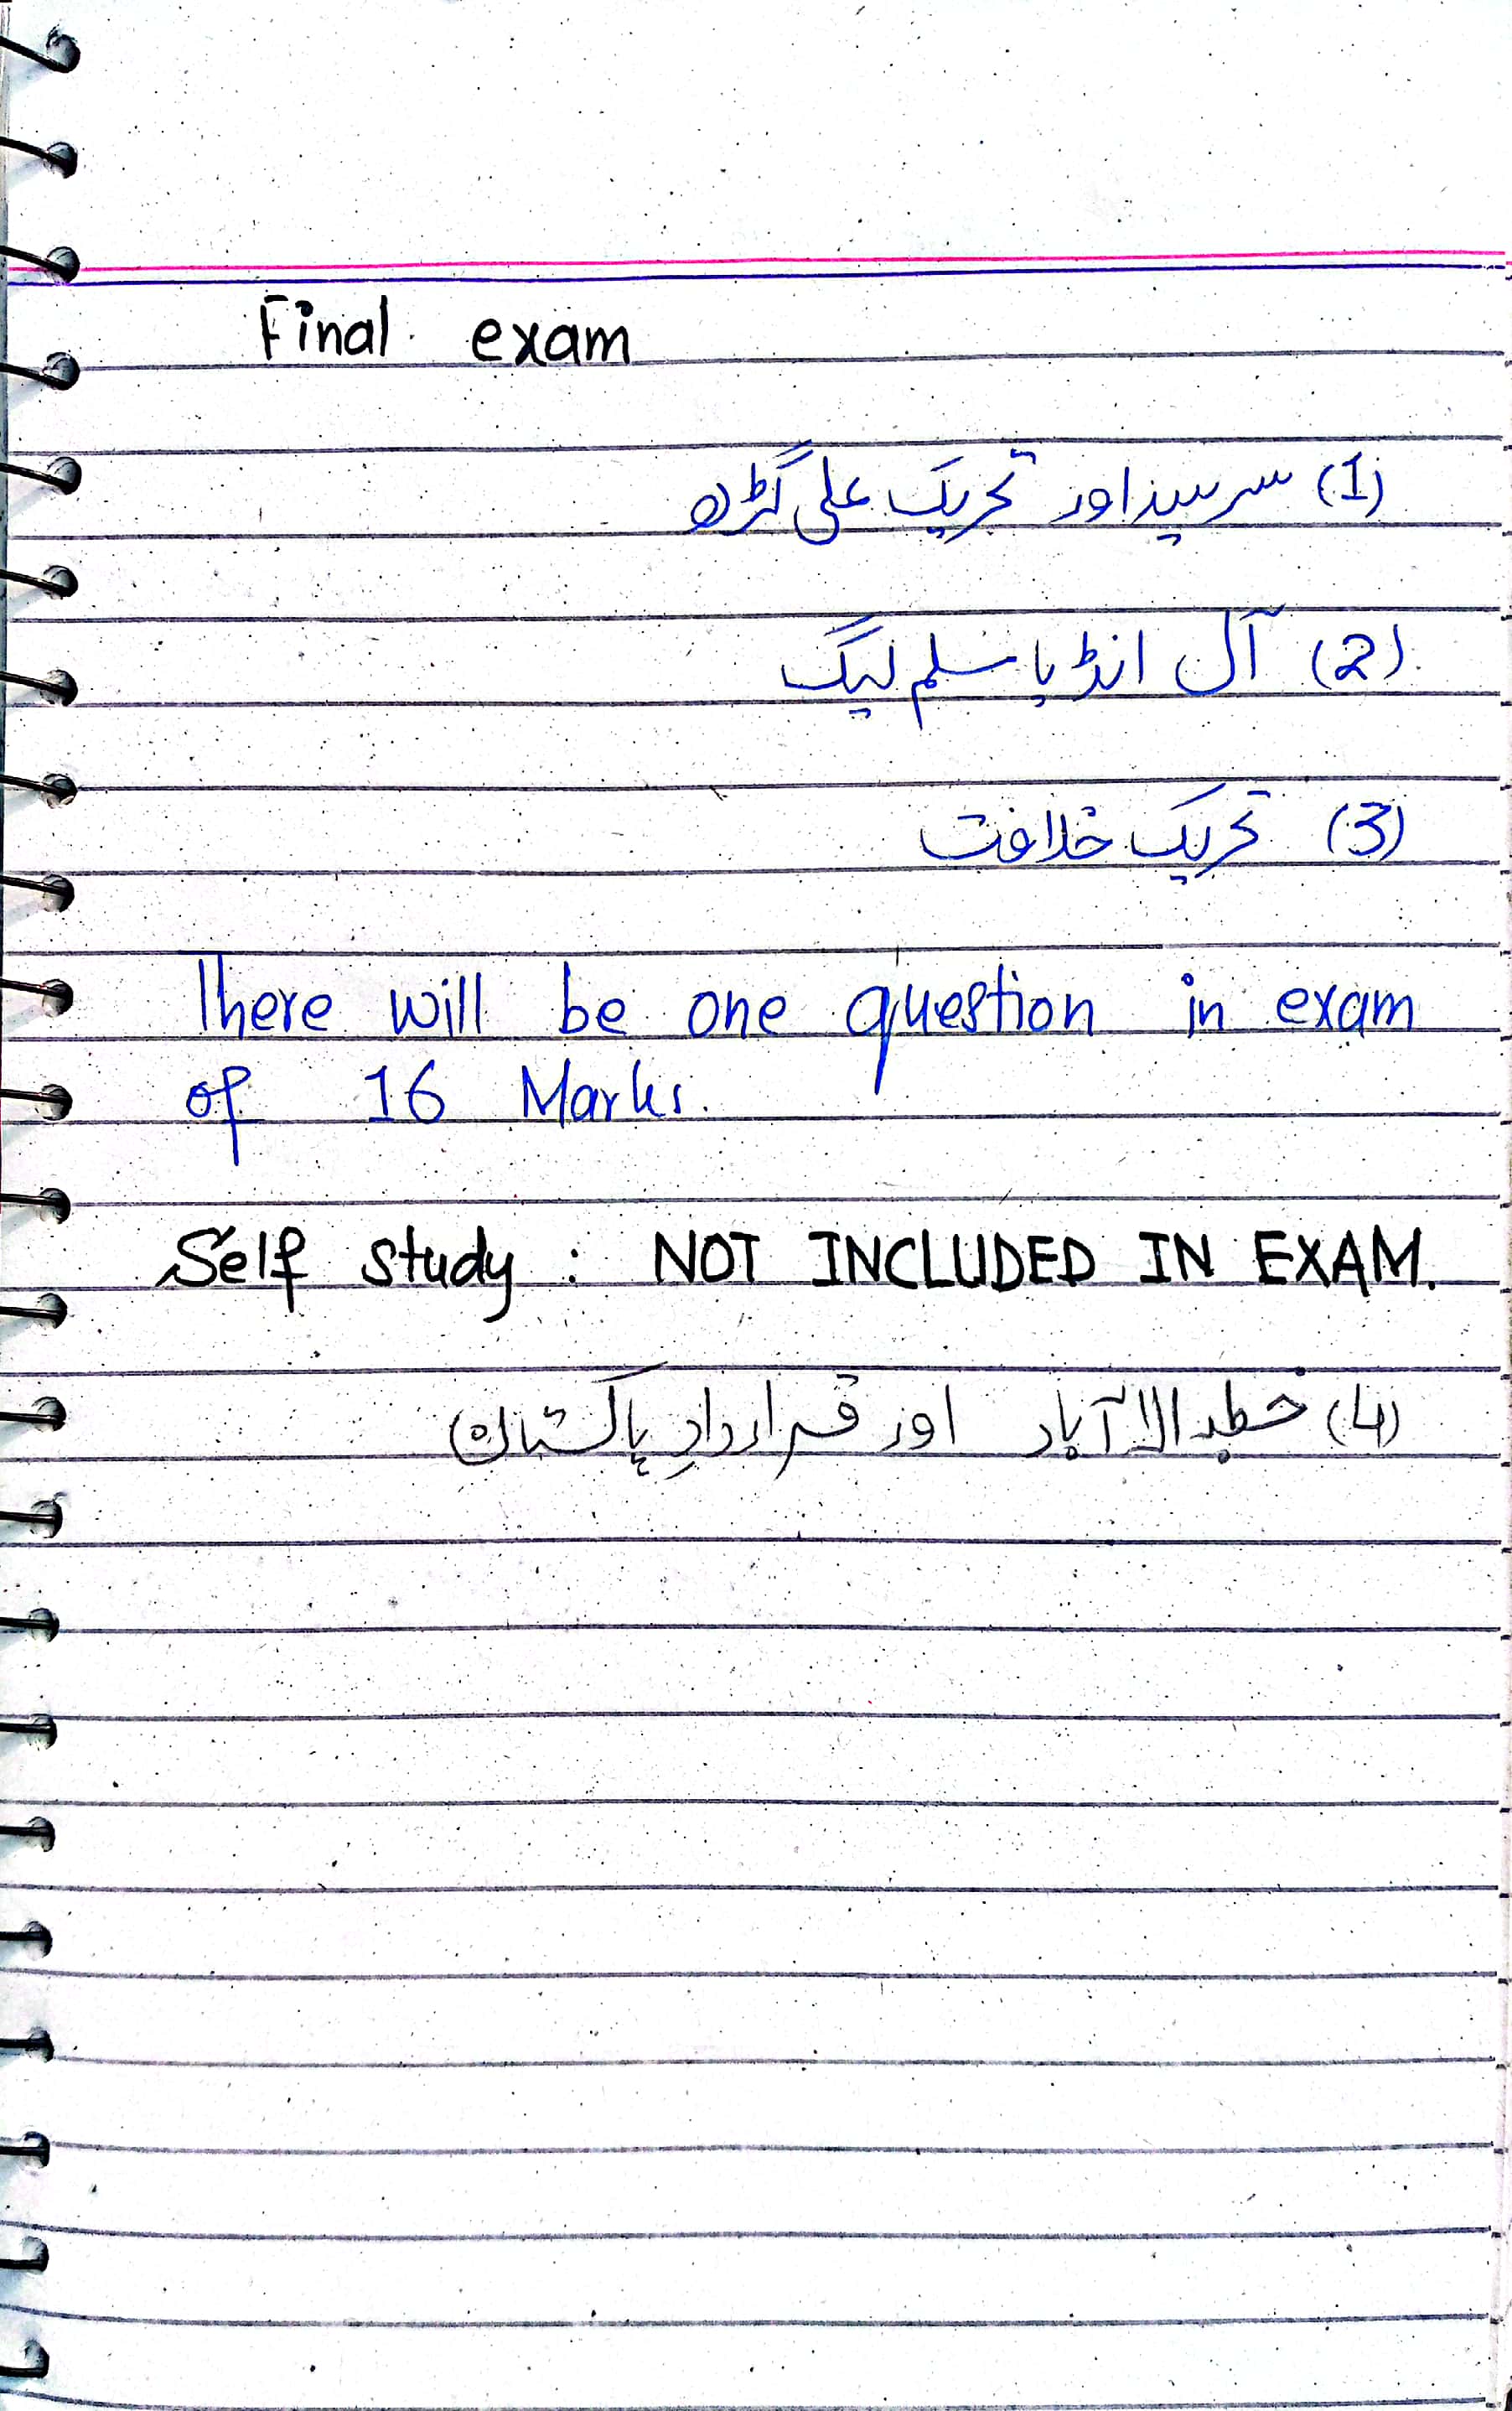 Final exam
(1) سرسید اور تحریک علی گڑھ
(2) آل انڈیا مسلم لیگ
(3) تحریک خلافت
There will be one question in exam
of 16 Marks.
Self study : NOT INCLUDED IN EXAM.
(4) خطبہ الہ آباد اور قراردادِ پاکستان